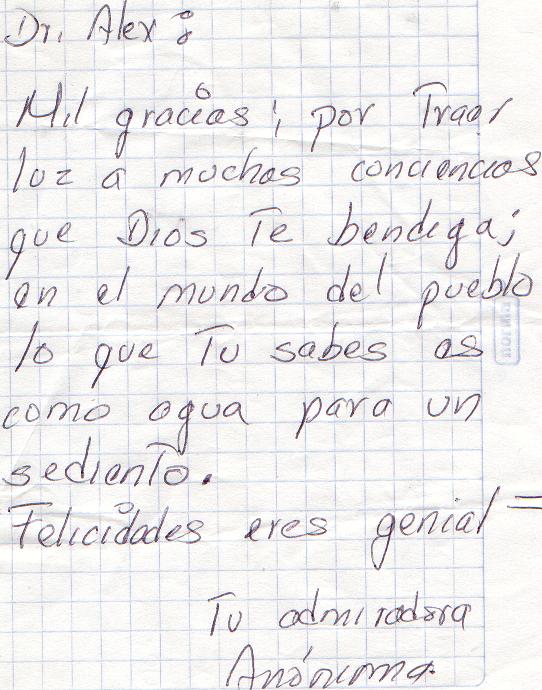 Dr. Alex:
Mil gracias; por Traer
luz a muchas conciencias
que Dios Te bendiga;
en el mundo del pueblo
lo que Tu sabes es
como agua para un
sediento.
Felicidades eres genial =
Tu admiradora
Anónima.